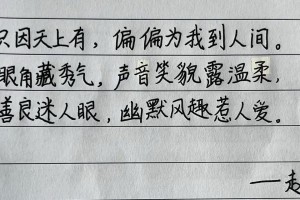 只因天上有，偏偏为我到人间。
眼角藏秀气，声音笑貌露温柔，
善良迷人眼，幽默风趣惹人爱。
——赵